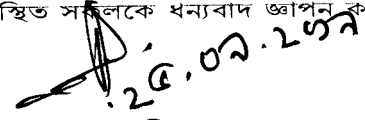 স্থিত সকলকে ধন্যবাদ জ্ঞাপন ক
২৫.০৯.২